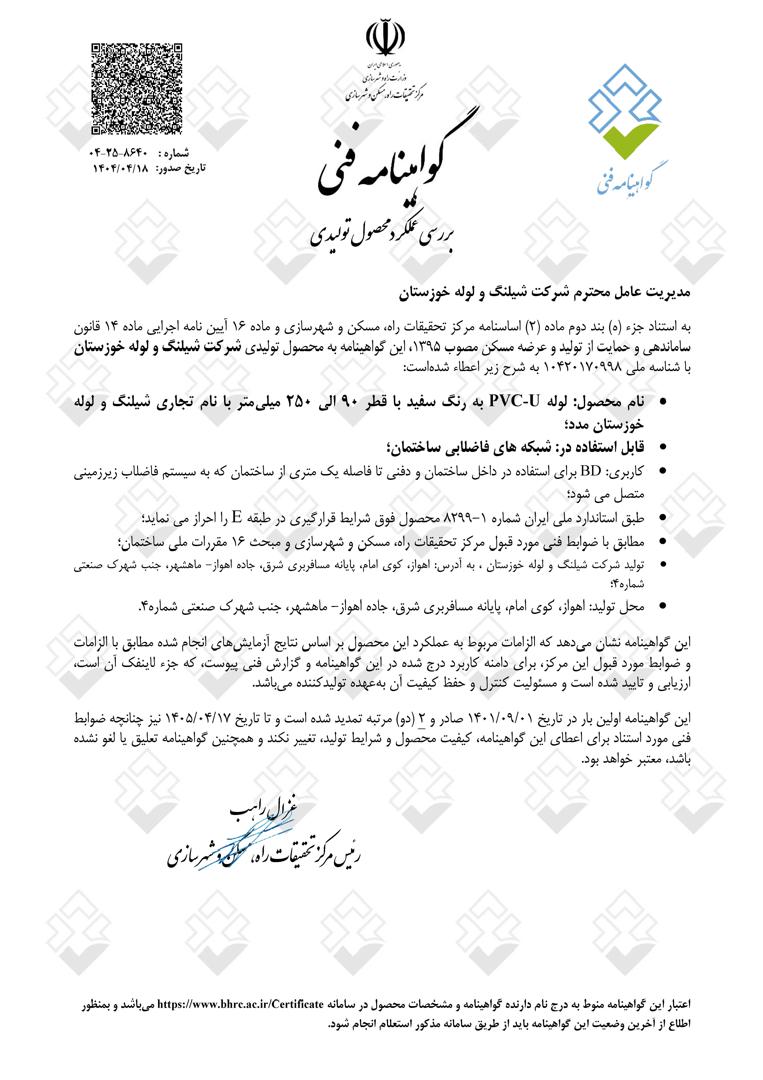 جمهوری اسلامی ایران
وزارت راه و شهرسازی
مرکز تحقیقات راه، مسکن و شهرسازی
شماره : ۸۶۴۰-۲۵-۰۴
تاریخ صدور: ۱۴۰۴/۰۴/۱۸
گواهینامه فنی
گواهینامه فنی
بررسی عملکرد محصول تولیدی
مدیریت عامل محترم شرکت شیلنگ و لوله خوزستان
به استناد جزء (ه) بند دوم ماده (۲) اساسنامه مرکز تحقیقات راه، مسکن و شهرسازی و ماده ۱۶ آیین نامه اجرایی ماده ۱۴ قانون
ساماندهی و حمایت از تولید و عرضه مسکن مصوب ۱۳۹۵، این گواهینامه به محصول تولیدی شرکت شیلنگ و لوله خوزستان
با شناسه ملی ۱۰۴۲۰۱۷۰۹۹۸ به شرح زیر اعطاء شده‌است:
• نام محصول: لوله PVC-U به رنگ سفید با قطر ۹۰ الی ۲۵۰ میلی‌متر با نام تجاری شیلنگ و لوله
خوزستان مدد؛
• قابل استفاده در: شبکه های فاضلابی ساختمان؛
• کاربری: BD برای استفاده در داخل ساختمان و دفنی تا فاصله یک متری از ساختمان که به سیستم فاضلاب زیرزمینی
متصل می شود؛
• طبق استاندارد ملی ایران شماره ۱-۸۲۹۹ محصول فوق شرایط قرارگیری در طبقه E را احراز می نماید؛
• مطابق با ضوابط فنی مورد قبول مرکز تحقیقات راه، مسکن و شهرسازی و مبحث ۱۶ مقررات ملی ساختمان؛
• تولید شرکت شیلنگ و لوله خوزستان ، به آدرس: اهواز، کوی امام، پایانه مسافربری شرق، جاده اهواز- ماهشهر، جنب شهرک صنعتی
شماره۴؛
• محل تولید: اهواز، کوی امام، پایانه مسافربری شرق، جاده اهواز- ماهشهر، جنب شهرک صنعتی شماره۴.
این گواهینامه نشان می‌دهد که الزامات مربوط به عملکرد این محصول بر اساس نتایج آزمایش‌های انجام شده مطابق با الزامات
و ضوابط مورد قبول این مرکز، برای دامنه کاربرد درج شده در این گواهینامه و گزارش فنی پیوست، که جزء لاینفک آن است،
ارزیابی و تایید شده است و مسئولیت کنترل و حفظ کیفیت آن به‌عهده تولیدکننده می‌باشد.
این گواهینامه اولین بار در تاریخ ۱۴۰۱/۰۹/۰۱ صادر و ۲ (دو) مرتبه تمدید شده است و تا تاریخ ۱۴۰۵/۰۴/۱۷ نیز چنانچه ضوابط
فنی مورد استناد برای اعطای این گواهینامه، کیفیت محصول و شرایط تولید، تغییر نکند و همچنین گواهینامه تعلیق یا لغو نشده
باشد، معتبر خواهد بود.
غزال راهب
رئیس مرکز تحقیقات راه، مسکن و شهرسازی
اعتبار این گواهینامه منوط به درج نام دارنده گواهینامه و مشخصات محصول در سامانه https://www.bhrc.ac.ir/Certificate می‌باشد و بمنظور
اطلاع از آخرین وضعیت این گواهینامه باید از طریق سامانه مذکور استعلام انجام شود.